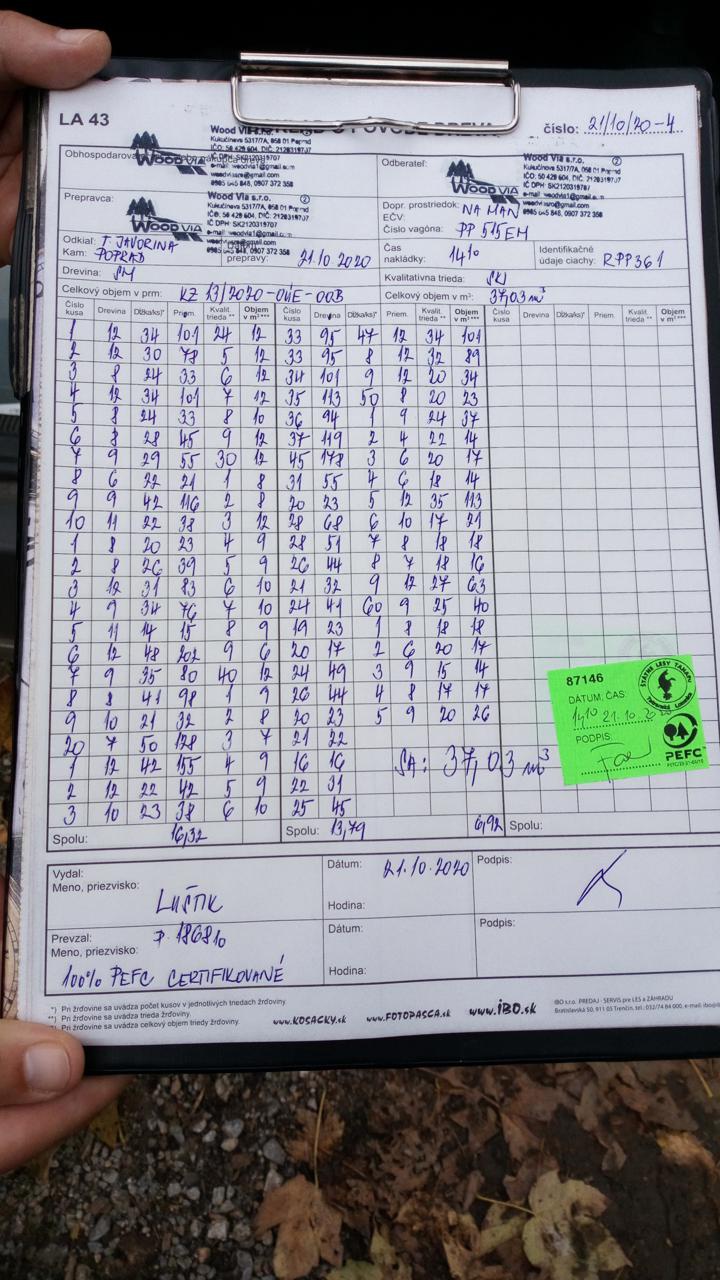 LA 43
číslo: 21/10/20-4
Wood Via s.r.o. ②
Kukučínova 5317/7A, 058 01 Poprad
IČO: 50 429 604, DIČ: 2120319707
IČ DPH: SK2120319707
0905 645 848, 0907 372 358
WOOD VIA
Odberateľ:
WOOD VIA
Wood Via s.r.o. ②
Kukučínova 5317/7A, 058 01 Poprad
IČO: 50 429 604, DIČ: 2120319707
IČ DPH: SK2120319707
0905 645 848, 0907 372 358
Prepravca:
WOOD VIA
Wood Via s.r.o. ②
Kukučínova 5317/7A, 058 01 Poprad
IČO: 50 429 604, DIČ: 2120319707
IČ DPH: SK2120319707
0905 645 848, 0907 372 358
Dopr. prostriedok: NA MAN
EČV:
Číslo vagóna: PP 515EM
Odkiaľ: T. JAVORINA
Kam: POPRAD
prepravy: 21.10 2020
Čas nakládky: 14 10
Identifikačné údaje ciachy: RPP361
Drevina: SM
Kvalitatívna trieda: SKI
Celkový objem v prm: KZ 13/2020-OÚE-OOB
Celkový objem v m³: 37,03 m³
Číslo kusa Drevina Dĺžka/ks)* Priem. Kvalit. trieda ** Objem v m³*** Číslo kusa Drevina Dĺžka/ks)* Priem. Kvalit. trieda ** Objem v m³*** Číslo kusa Drevina Dĺžka/ks)* Priem. Kvalit. trieda ** Objem v m³***
1 12 34 101 24 12 33 95 47 12 34 101
2 12 30 78 5 12 33 95 8 12 32 89
3 8 24 33 6 12 34 101 9 12 20 34
4 12 34 101 7 12 35 113 50 8 20 23
5 8 24 33 8 10 36 94 1 9 24 37
6 8 28 45 9 12 37 119 2 4 22 14
7 9 29 55 30 12 45 178 3 6 20 17
8 6 22 21 1 8 31 55 4 6 18 14
9 9 42 116 2 8 20 23 5 12 35 113
10 11 22 38 3 12 28 68 6 10 17 21
1 8 20 23 4 9 28 51 7 8 18 18
2 8 26 39 5 9 26 44 8 7 18 16
3 12 31 83 6 10 21 32 9 12 27 63
4 9 34 76 7 10 24 41 60 9 25 40
5 11 14 15 8 9 19 23 1 8 18 18
6 12 48 202 9 6 20 17 2 6 20 17
7 9 35 80 40 12 24 49 3 9 15 14
8 8 41 98 1 9 26 44 4 8 17 17
9 10 21 32 2 8 20 23 5 9 20 26
20 7 50 128 3 7 21 22
1 12 42 155 4 9 16 16
2 12 22 42 5 9 22 31
3 10 23 38 6 10 25 45
SA: 37,03 m³
Spolu: 16,32 Spolu: 13,79 6,92 Spolu:
87146
DÁTUM, ČAS:
14 10 21.10.2020
PODPIS:
ŠTÁTNE LESY TANAPU
PEFC
Vydal:
Meno, priezvisko:
LUŠTIK
Dátum: 21.10.2020
Hodina:
Podpis:
Prevzal:
Meno, priezvisko:
100% PEFC CERTIFIKOVANÉ
Dátum:
Hodina:
Podpis:
*) Pri žrďovine sa uvádza počet kusov v jednotlivých triedach žrďoviny.
**) Pri žrďovine sa uvádza trieda žrďoviny.
***) Pri žrďovine sa uvádza celkový objem triedy žrďoviny
www.KOSACKY.sk
www.FOTOPASCA.sk
www.iBO.sk
IBO s.r.o. PREDAJ - SERVIS pre LES a ZÁHRADU
Bratislavská 50, 911 05 Trenčín, tel.: 032/74 84 000